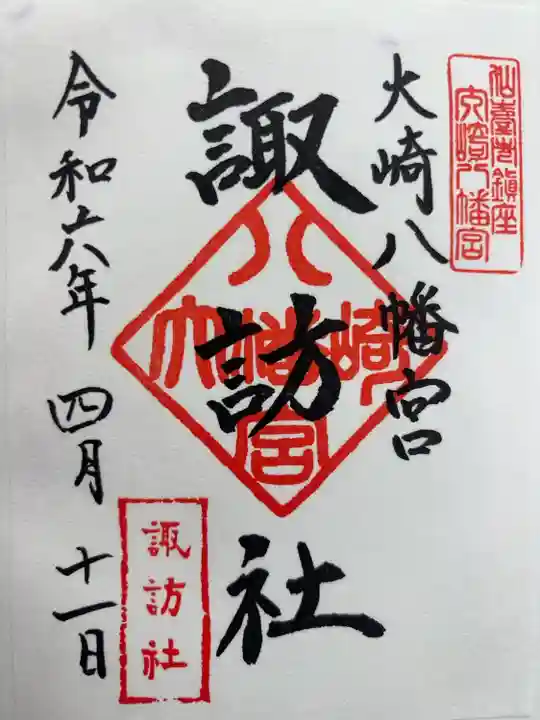 仙臺总鎮座
大崎八幡宮
大崎八幡宮
諏訪社
八幡宮
大崎
諏訪社
令和六年 四月 十一日